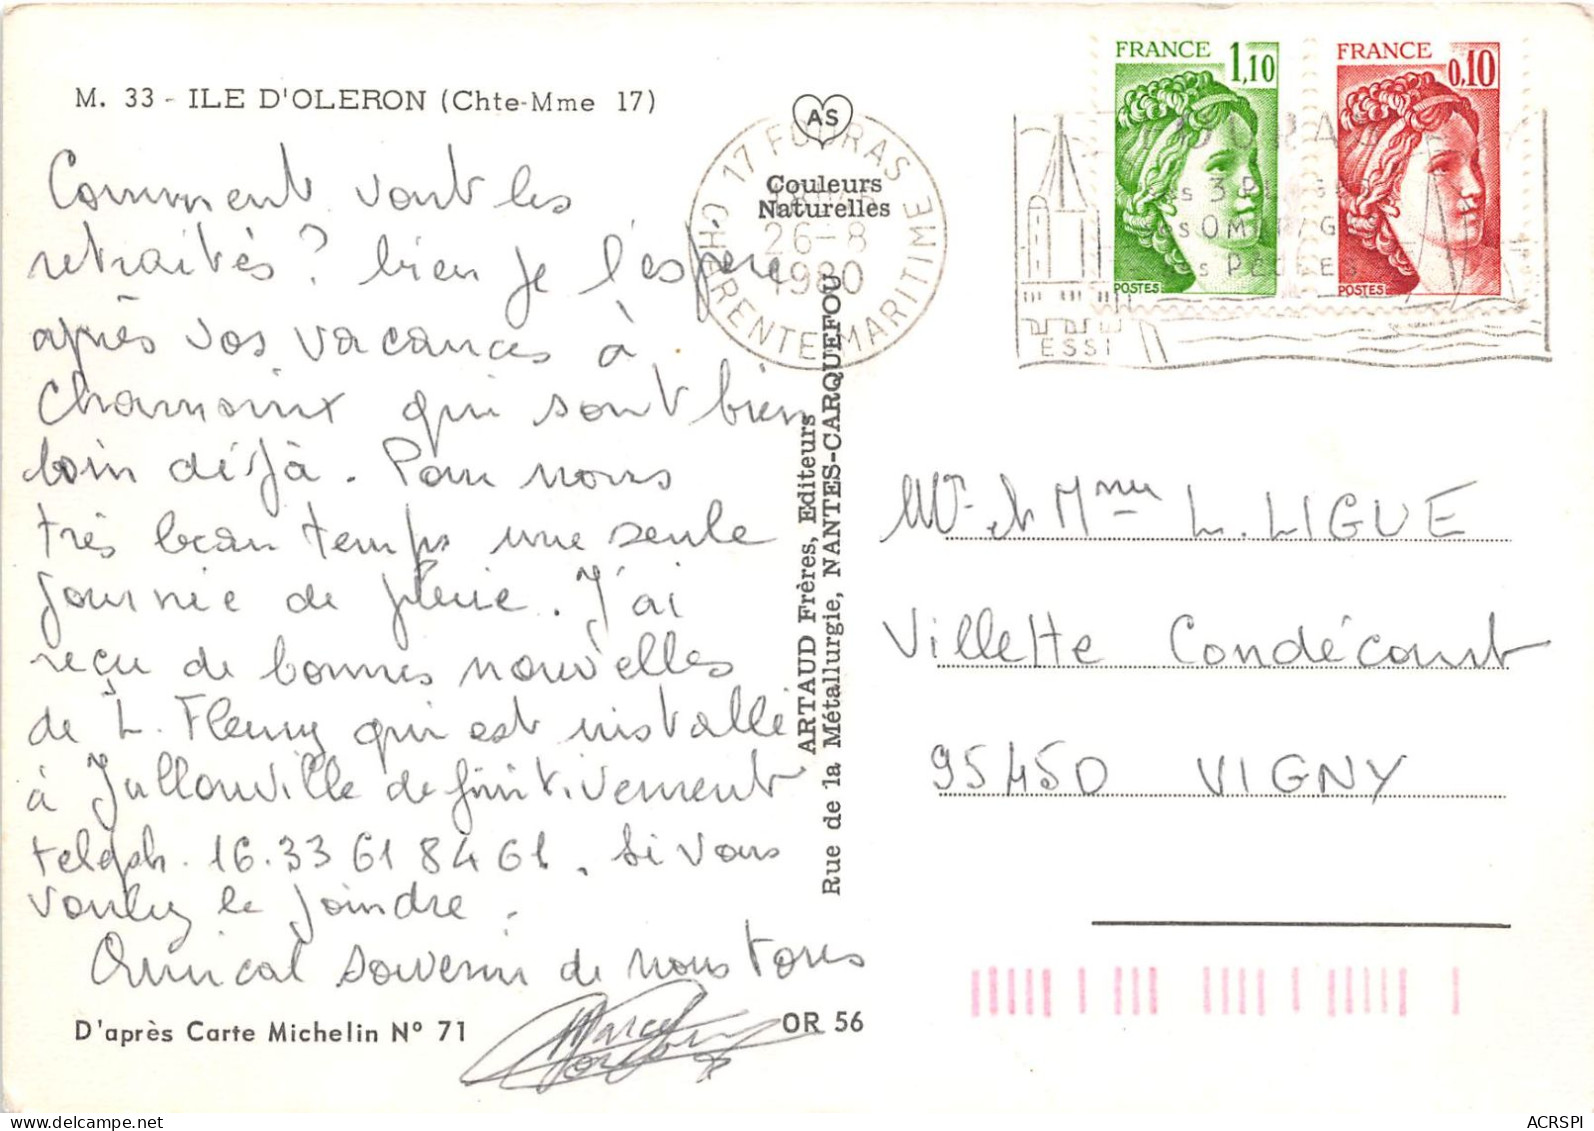 M. 33 - ILE D'OLERON (Chte-Mme 17)
Comment vont les
retraités? bien je l'espère
après vos vacances à
Chamonix qui sont bien
loin déjà. Pour nous
très beau temps une seule
journée de pluie. J'ai
reçu de bonnes nouvelles
de L. Fleury qui est installé
à Jullouville definitivement
teleph. 16.33 61 84 61. Si vous
voulez le joindre.
Amical souvenir de nous tous
Marcel
D'après Carte Michelin N° 71
OR 56
AS
Couleurs
Naturelles
17 FOURAS
26-8
1980
CHARENTE MARITIME
ARTAUD Frères, Editeurs
Rue de la Métallurgie, NANTES-CARQUEFOU
FRANCE 1,10
POSTES
FRANCE 0,10
POSTES
ESSI
Mr et Mme L. LIGUE
Villette Condécourt
95450 VIGNY
delcampe.net
ACRSPI